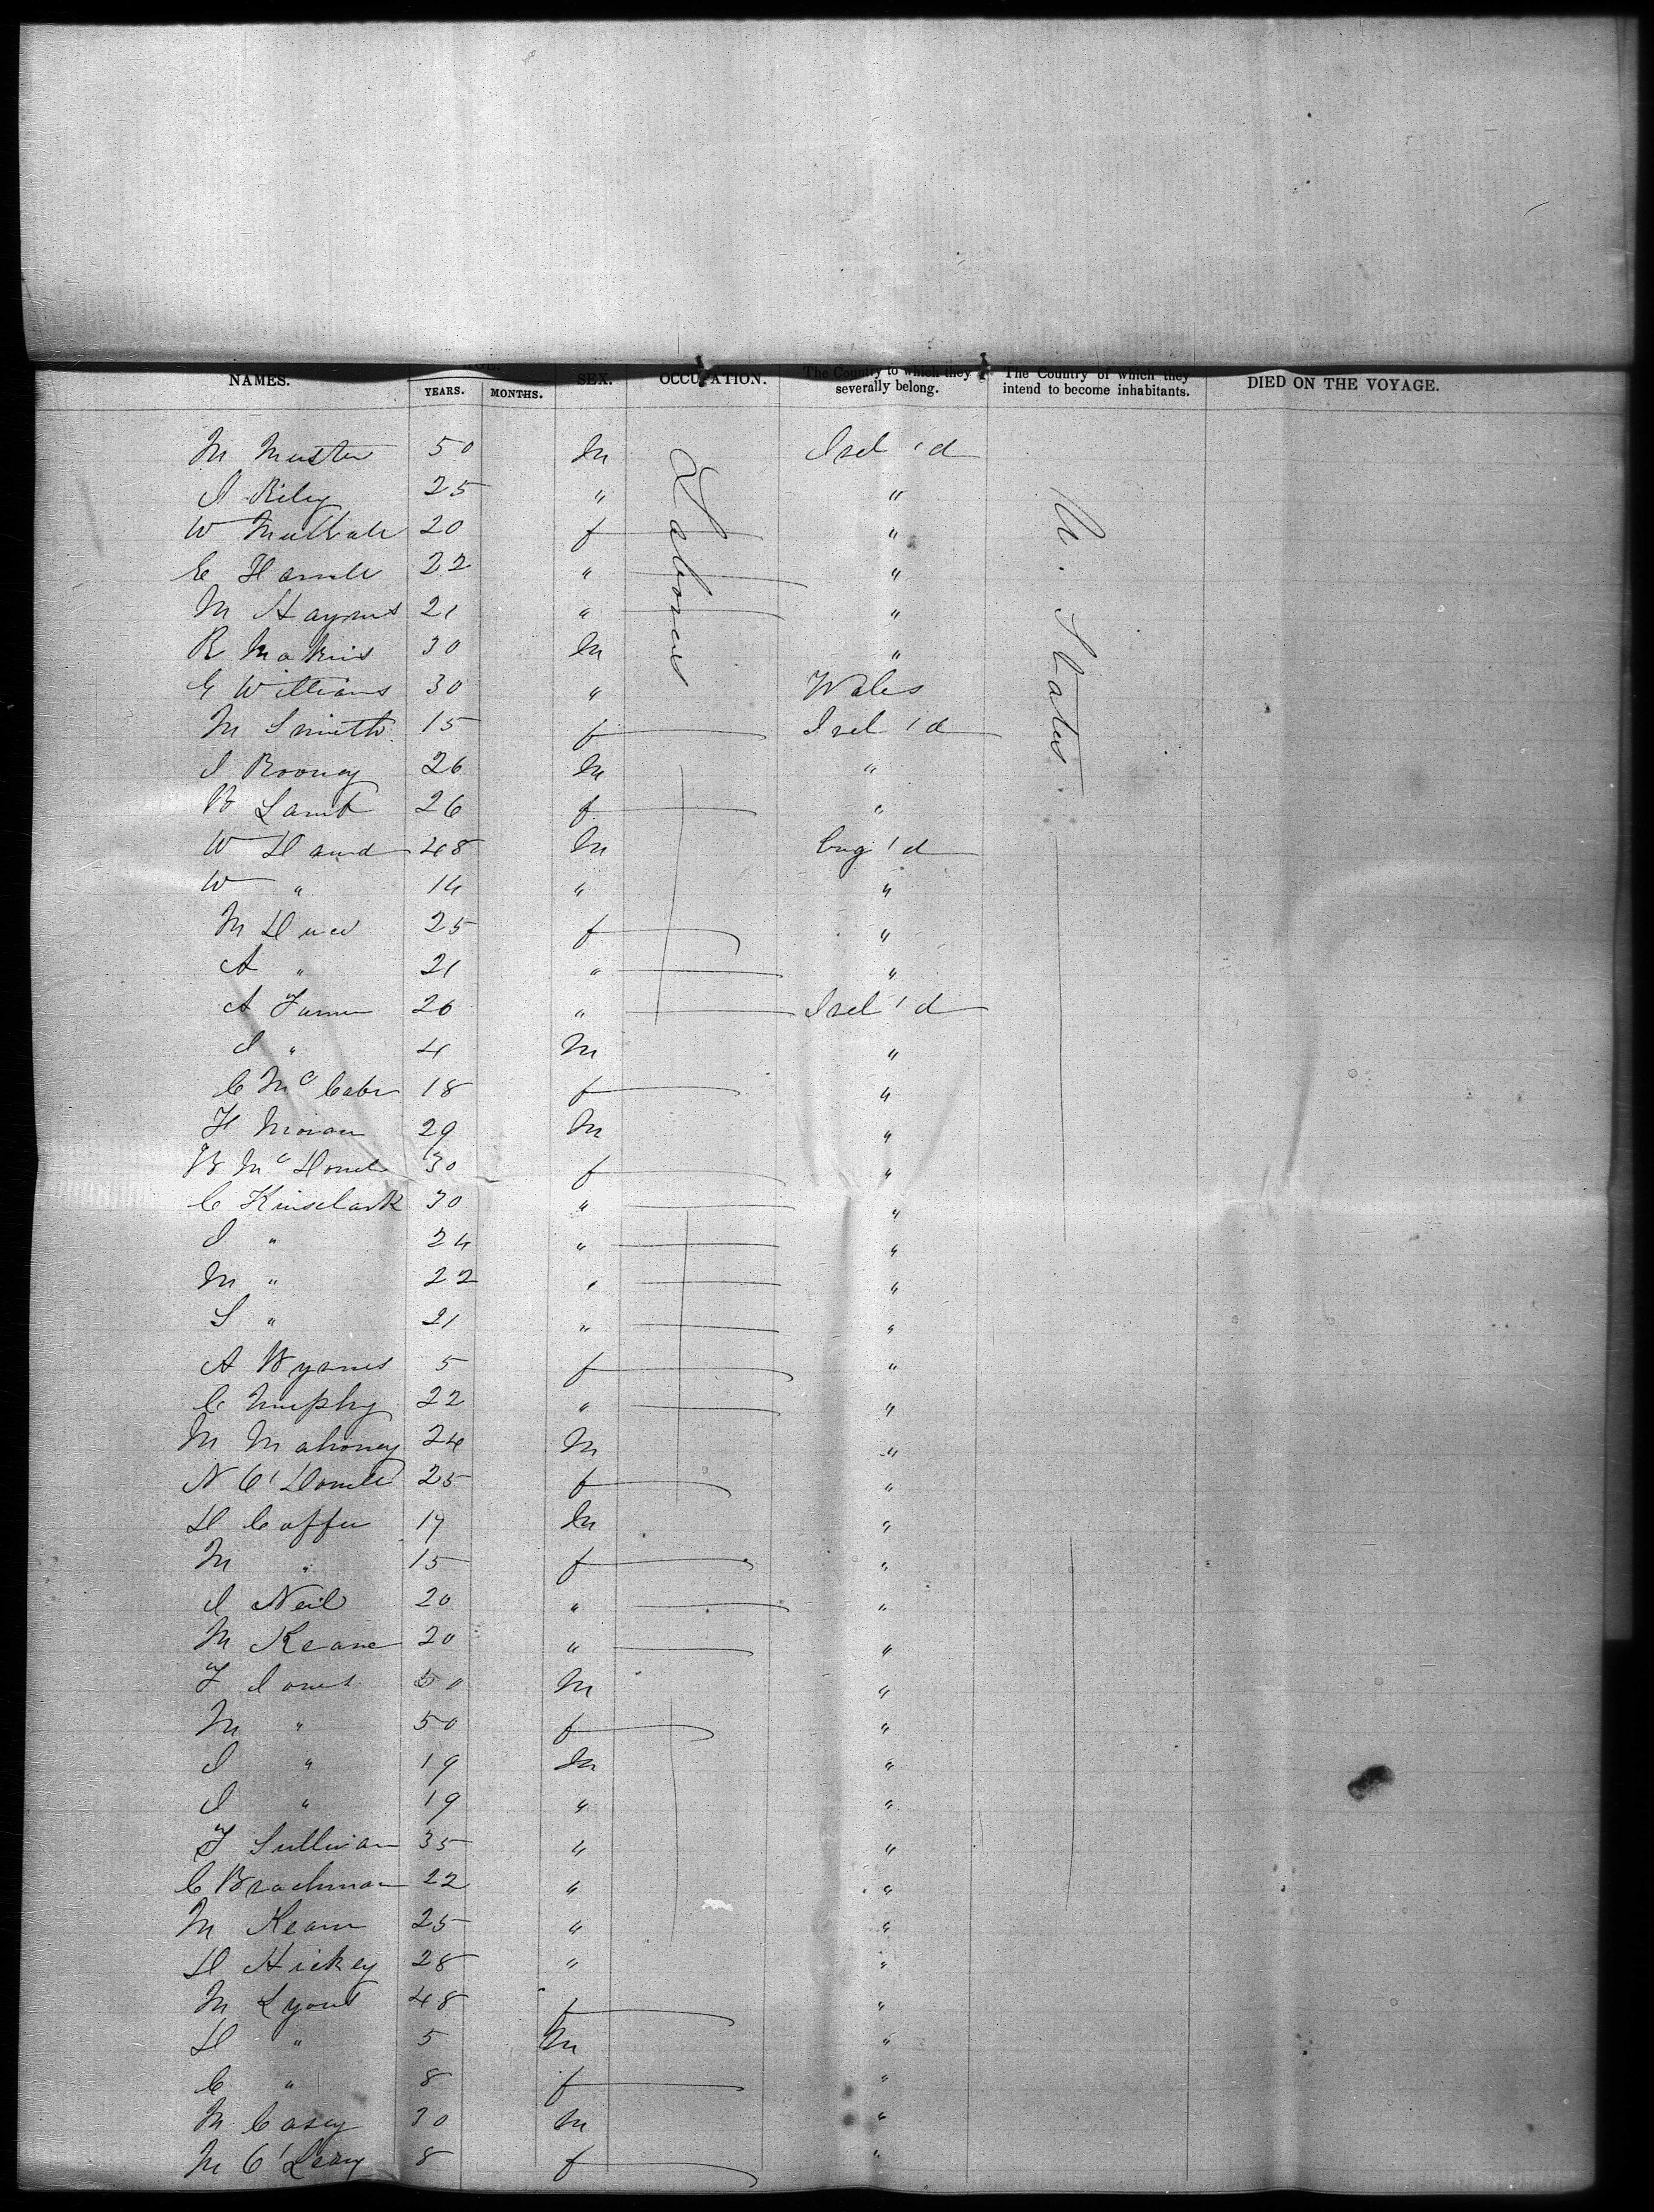 NAMES. YEARS. MONTHS. SEX. OCCUPATION. The Country to which they severally belong. The Country of which they intend to become inhabitants. DIED ON THE VOYAGE.
Labourers
U. States
M 50 M Irel'd
J Riley 25 " "
W 20 f "
C 22 " "
M Haynes 21 " "
R 30 M "
G Williams 30 " Wales
M Smith 15 f Irel'd
J Rooney 26 M "
B Lamb 26 f "
W Hand 48 M Eng'd
W " 14 " "
M 25 f "
A " 21 " "
A 26 " Irel'd
J " 4 M "
C McCabe 18 f "
H Moran 29 M "
B 30 f "
C 30 " "
J " 24 " "
M " 22 " "
S " 21 " "
A Byrnes 5 f "
C Murphy 22 " "
M Mahoney 24 M "
N 25 f "
D Coffee 17 M "
M " 15 f "
J Neil 20 " "
M Keane 20 " "
T Jones M "
M " 50 f "
J " 19 M "
J " 19 " "
T Sullivan 35 " "
C 22 " "
M 25 " "
D Hickey 28 " "
M Lyons 48 f "
D " 5 M "
C " 8 f "
M Casey 30 M "
M O'Leary 8 f "